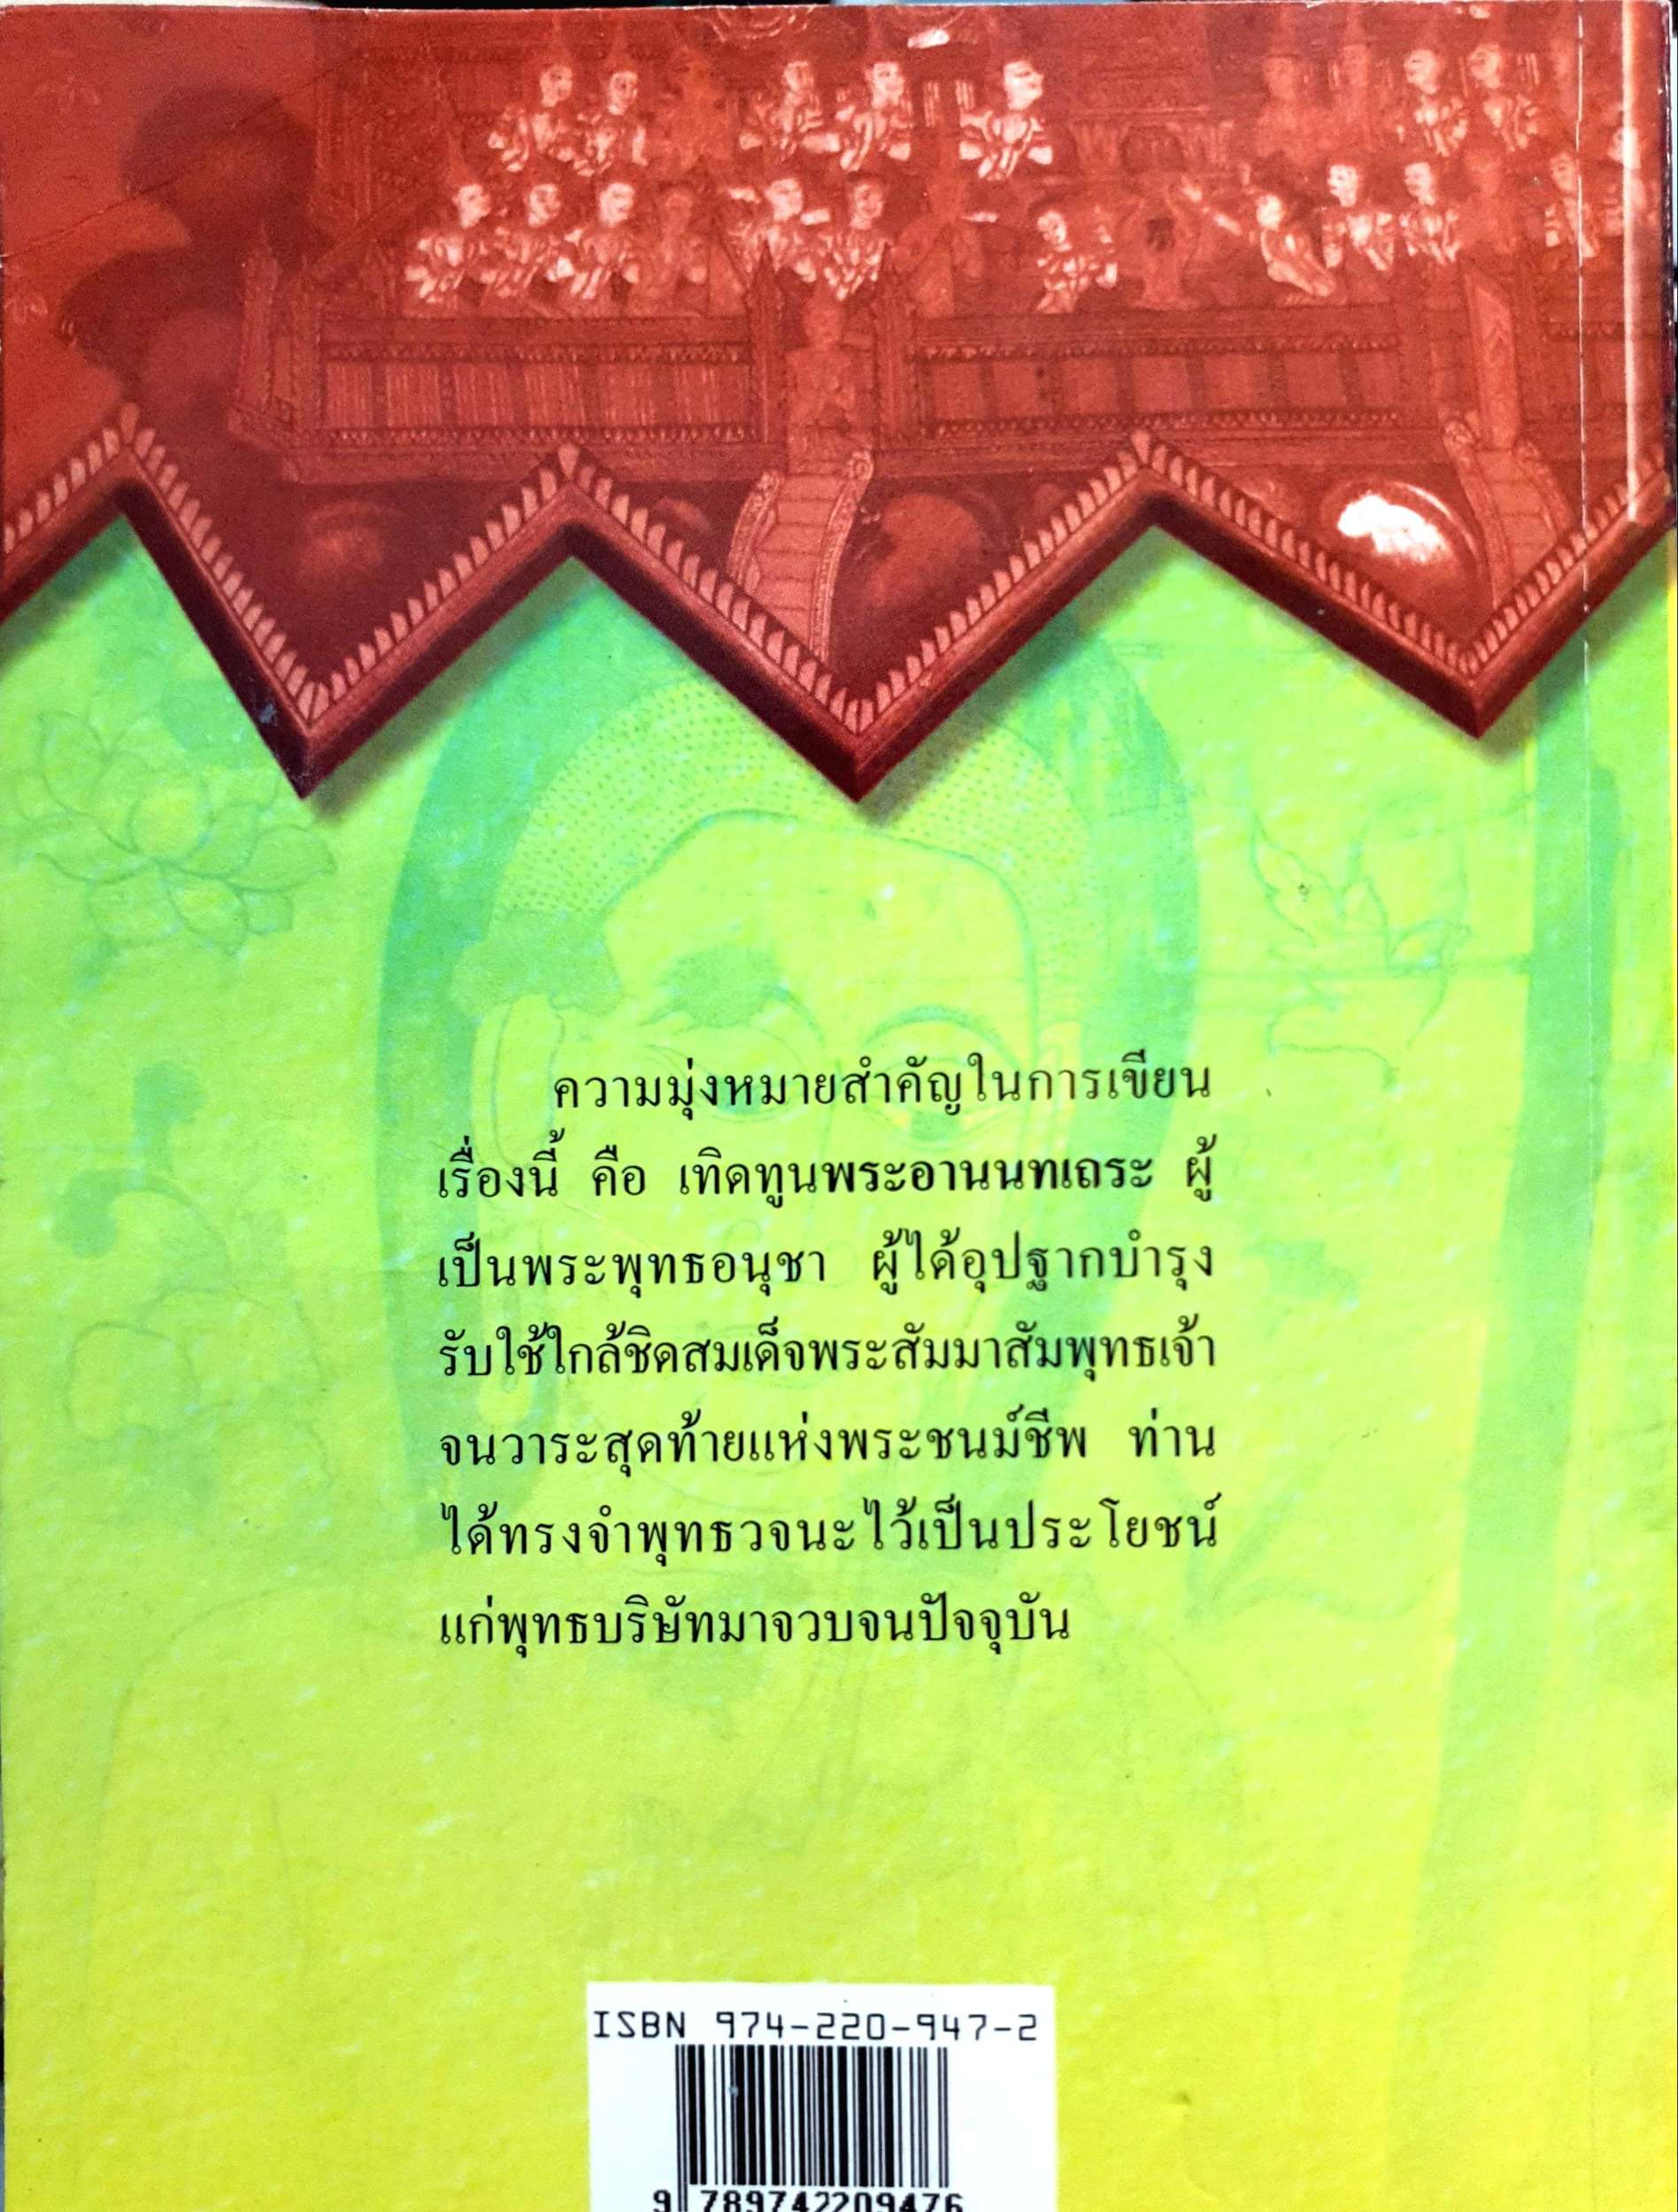 ความมุ่งหมายสำคัญในการเขียน
เรื่องนี้ คือ เทิดทูนพระอานนทเถระ ผู้
เป็นพระพุทธอนุชา ผู้ได้อุปฐากบำรุง
รับใช้ใกล้ชิดสมเด็จพระสัมมาสัมพุทธเจ้า
จนวาระสุดท้ายแห่งพระชนม์ชีพ ท่าน
ได้ทรงจำพุทธวจนะไว้เป็นประโยชน์
แก่พุทธบริษัทมาจวบจนปัจจุบัน
ISBN 974-220-947-2
9 789742209476